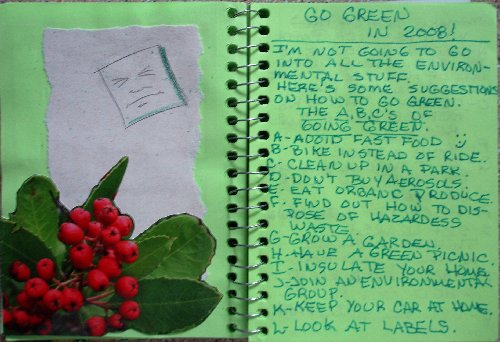 GO GREEN
IN 2008!
I'M NOT GOING TO GO
INTO ALL THE ENVIRON-
MENTAL STUFF.
HERE'S SOME SUGGESTIONS
ON HOW TO GO GREEN.
THE A,B,C'S OF
GOING GREEN.
A-AVOID FAST FOOD
B-BIKE INSTEAD OF RIDE.
C-CLEAN UP IN A PARK
D-DON'T BUY AEROSOLS.
E-EAT ORGANIC PRODUCE.
F-FIND OUT HOW TO DIS-
POSE OF HAZARDESS
WASTE.
G-GROW A GARDEN.
H-HAVE A GREEN PICNIC.
I-INSULATE YOUR HOME.
J-JOIN AN ENVIRONMENTAL
GROUP.
K-KEEP YOUR CAR AT HOME.
L-LOOK AT LABELS.